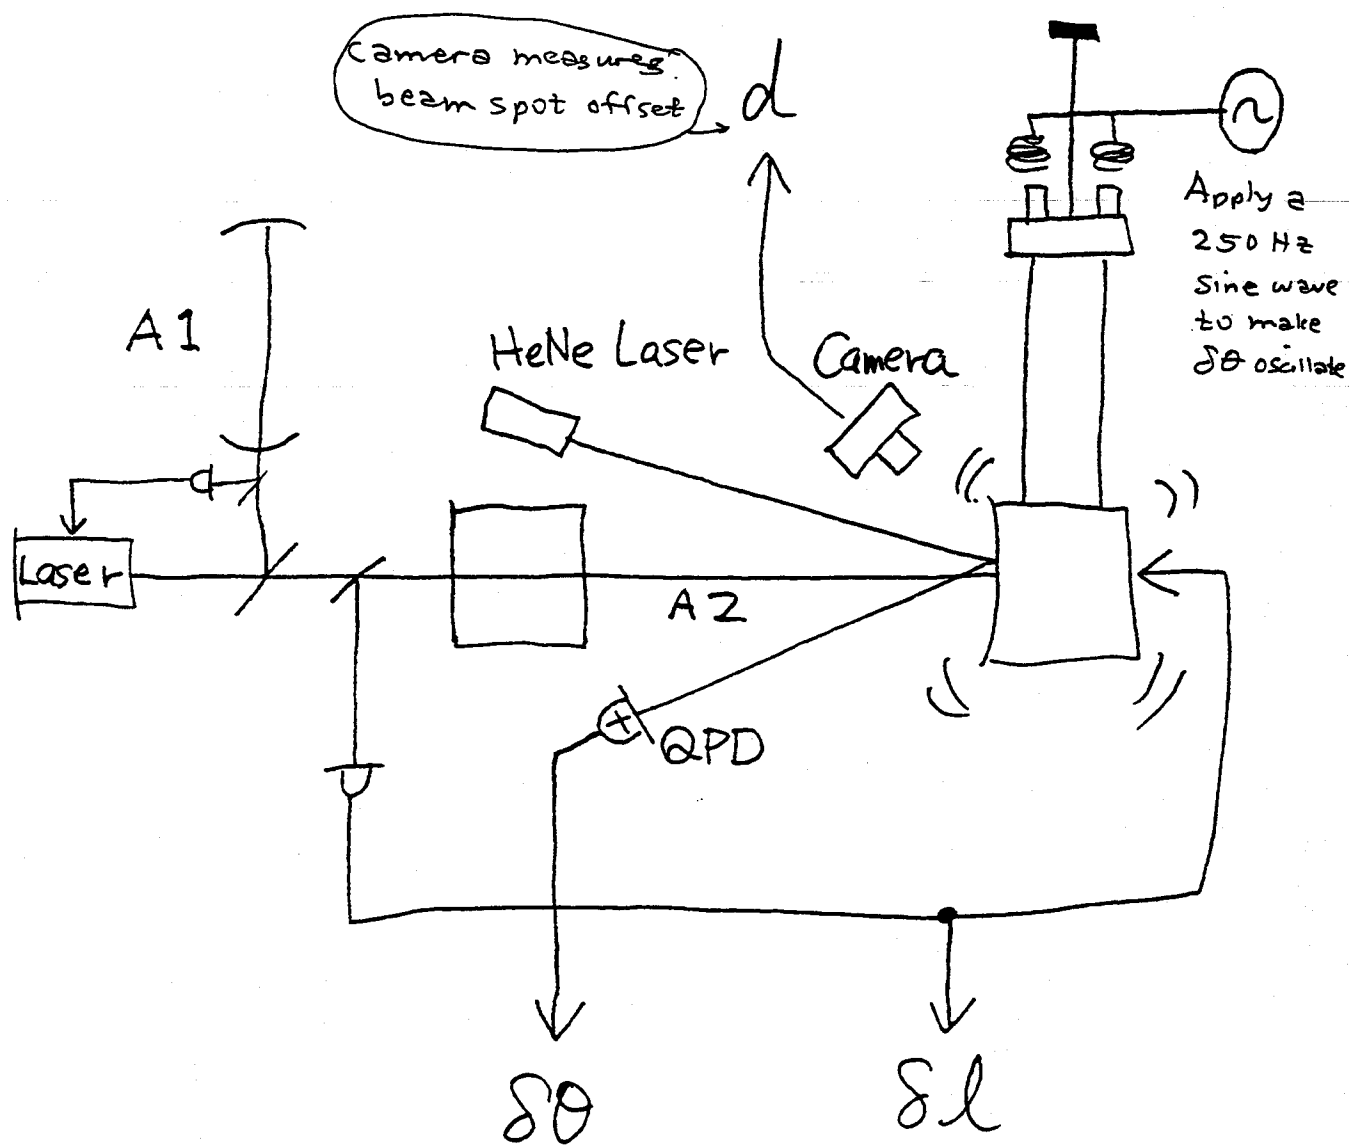 camera measures
beam spot offset
d
~
Apply a
250 Hz
sine wave
to make
δθ oscillate
A1
HeNe Laser
Camera
Laser
A2
QPD
δθ
δl